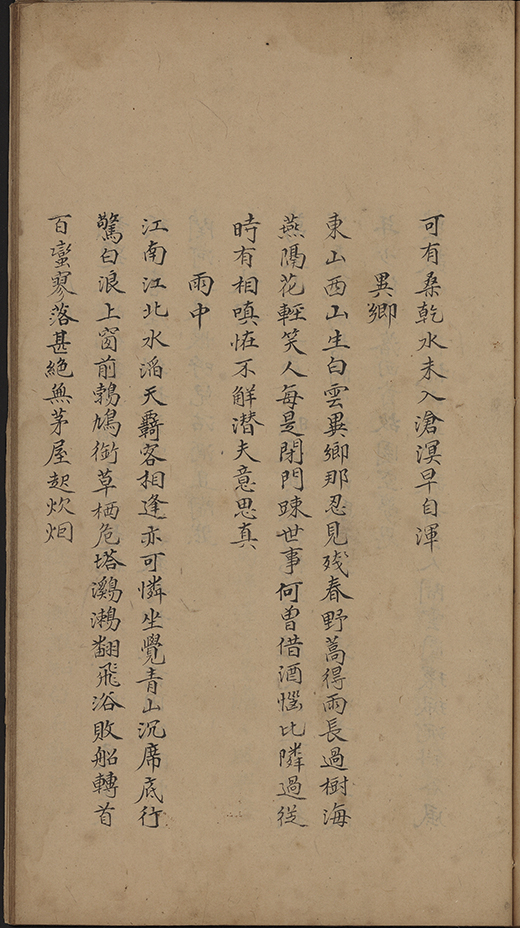 可有桑乾水未入滄溟早自渾
異鄉
東山西山生白雲異鄉那忍見殘春野蒿得雨長過樹海
燕隔花輕笑人每是閉門踈世事何曾借酒惱比隣過從
時有相嗔恠不解潛夫意思真
雨中
江南江北水滔天覊客相逢亦可憐坐覺青山沉席底行
驚白浪上窗前鵓鳩銜草栖危塔鸂鷘翻飛浴敗船轉首
百蠻寥落甚絕無茅屋起炊烟